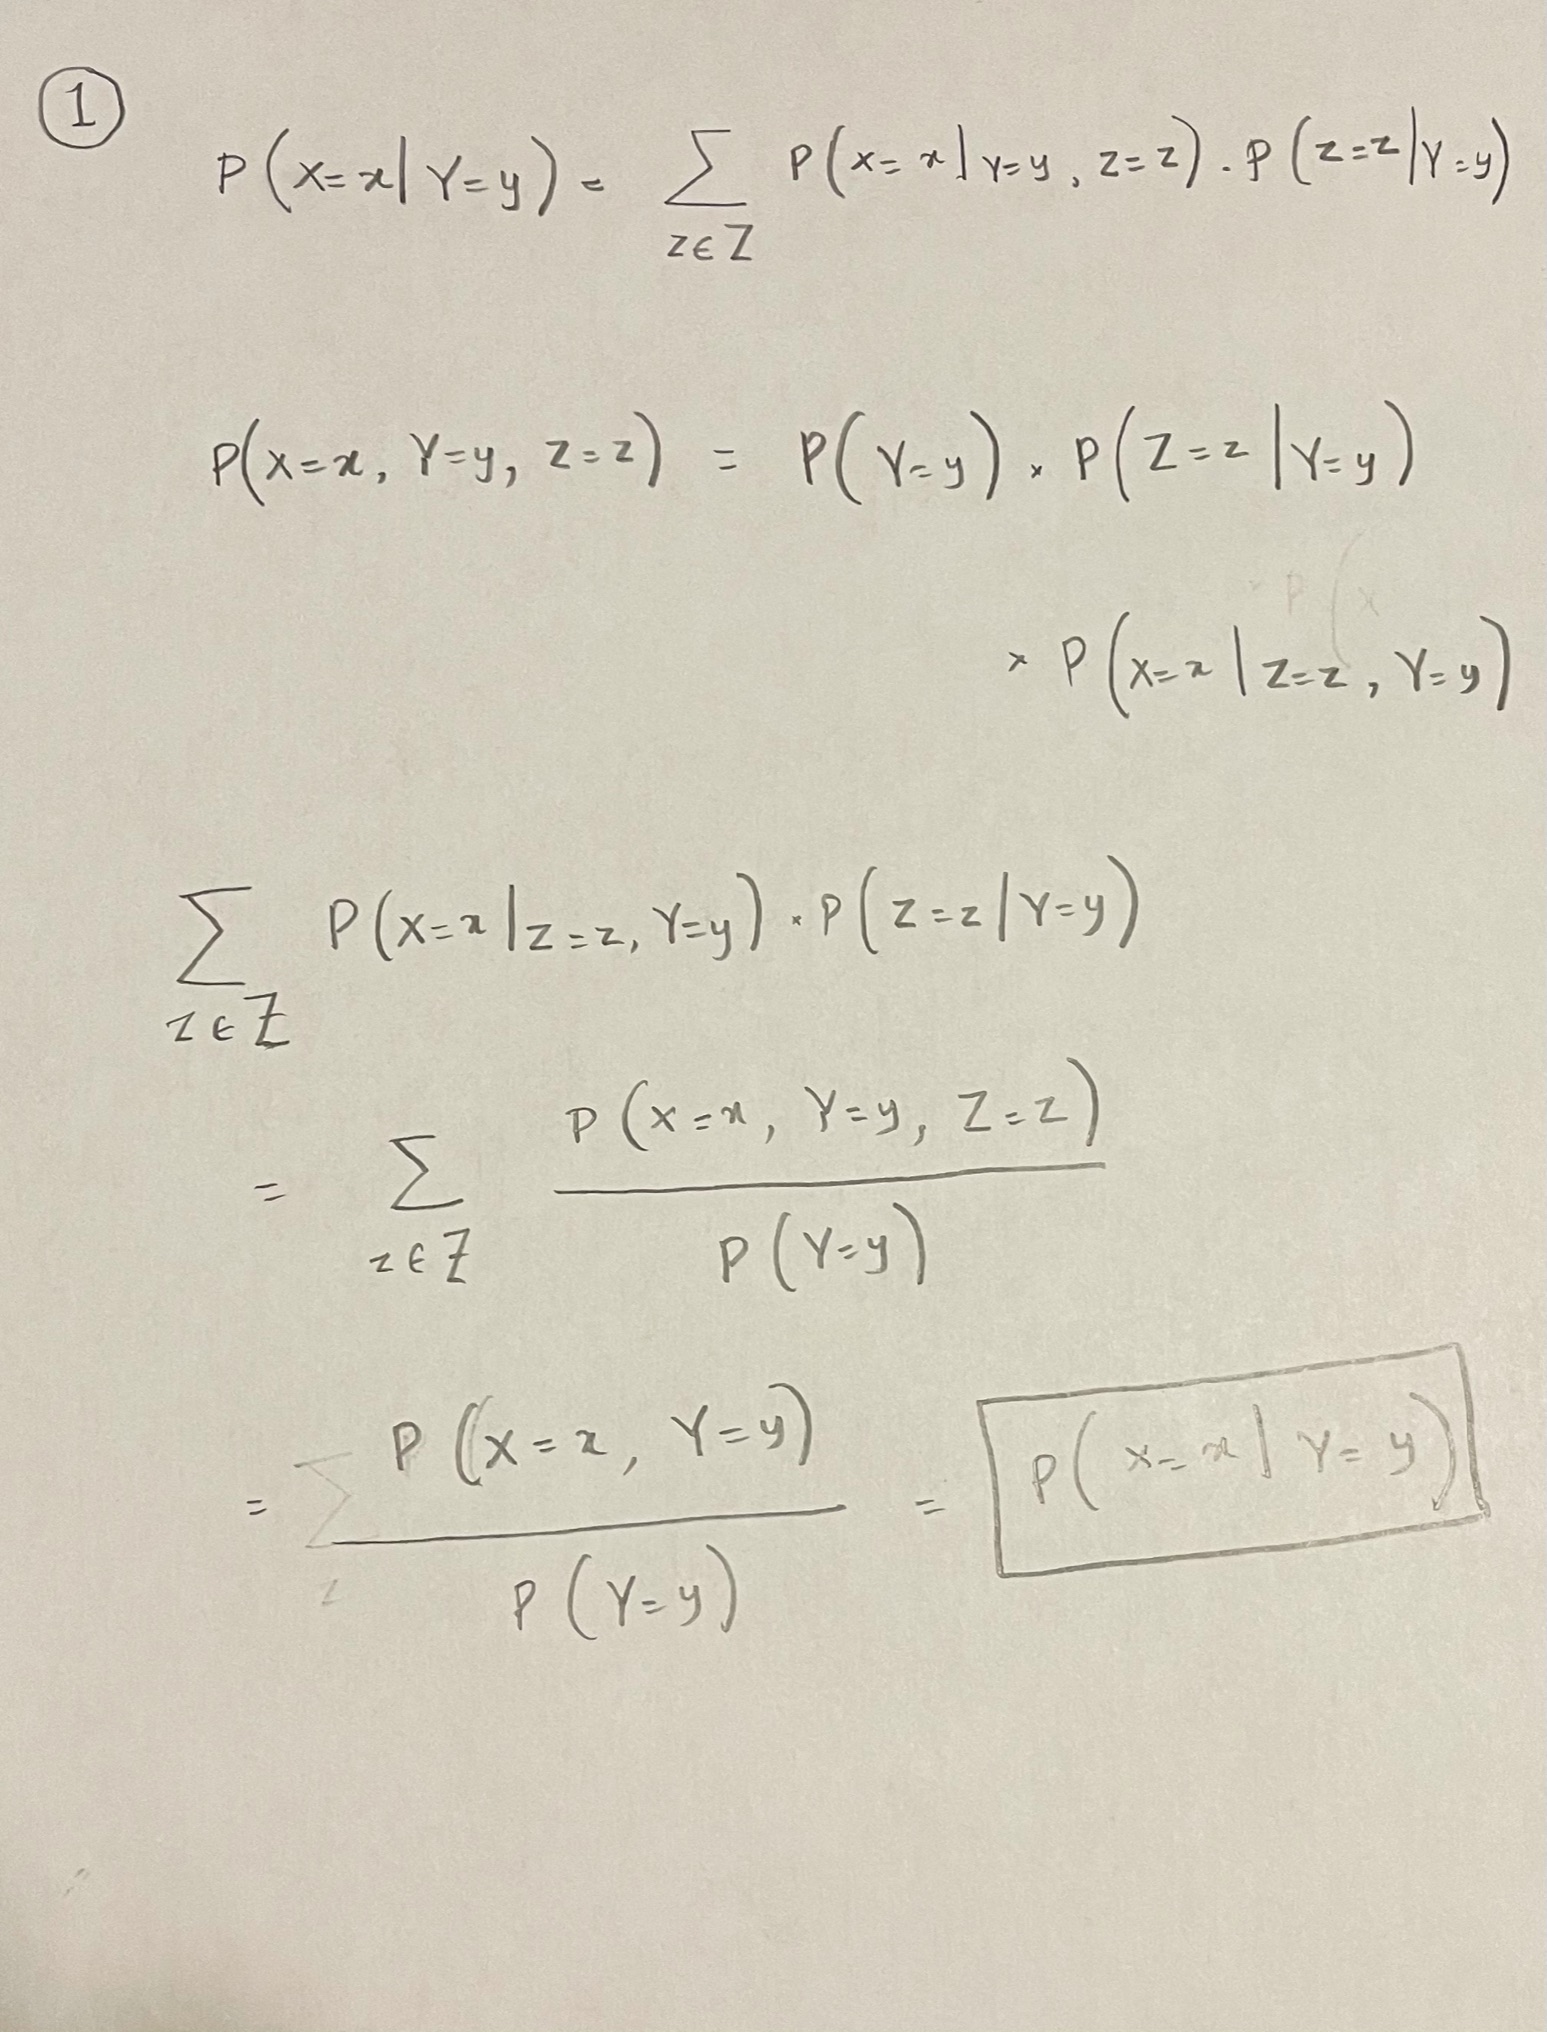 1
P(X=x|Y=y) = ∑ P(X=x|Y=y, Z=z) · P(Z=z|Y=y)
z∈Z
P(X=x, Y=y, Z=z) = P(Y=y) × P(Z=z|Y=y)
× P(X=x|Z=z, Y=y)
∑ P(X=x|Z=z, Y=y) · P(Z=z|Y=y)
z∈Z
= ∑ P(X=x, Y=y, Z=z)
z∈Z P(Y=y)
= P(X=x, Y=y) = P(X=x|Y=y)
P(Y=y)